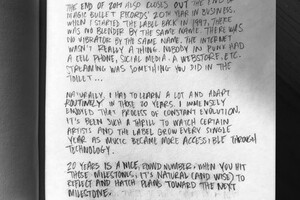 THE END OF 2017 ALSO CLOSES OUT THE END OF
MAGIC BULLET RECORDS' 20TH YEAR IN BUSINESS.
WHEN I STARTED THE LABEL BACK IN 1997, THERE
WAS NO BLENDER BY THE SAME NAME. THERE WAS
NO VIBRATOR BY THE SAME NAME. THE INTERNET
WASN'T REALLY A THING. NOBODY IN PUNK HAD
A CELL PHONE, SOCIAL MEDIA. A WEBSTORE, ETC.
STREAMING WAS SOMETHING YOU DID IN THE
TOILET...
NATURALLY, I HAD TO LEARN A LOT AND ADAPT
ROUTINELY IN THOSE 20 YEARS. I IMMENSELY
ENJOYED THAT PROCESS OF CONSTANT EVOLUTION.
IT'S BEEN SUCH A THRILL TO WATCH CERTAIN
ARTISTS AND THE LABEL GROW EVERY SINGLE
YEAR AS MUSIC BECAME MORE ACCESSIBLE THROUGH
TECHNOLOGY.
20 YEARS IS A NICE, ROUND NUMBER. WHEN YOU HIT
THOSE MILESTONES, IT'S NATURAL (AND WISE) TO
REFLECT AND HATCH PLANS TOWARD THE NEXT
MILESTONE.